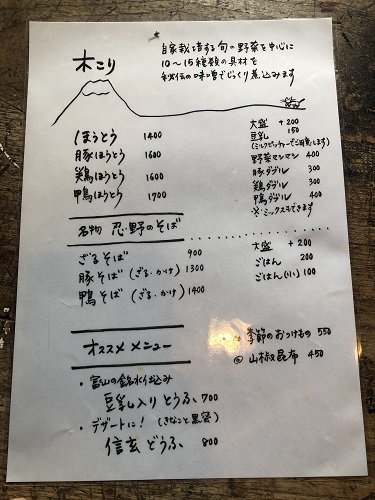 木こり
自家栽培する旬の野菜を中心に
10〜15種類の具材を
秘伝の味噌でじっくり煮込みます
ほうとう 1400
豚ほうとう 1600
鶏ほうとう 1600
鴨ほうとう 1700
大盛 +200
豆乳 150
(ミルクピッチャーでご用意します)
野菜マンマン 400
豚ダブル 300
鶏ダブル 300
鴨ダブル 400
※ミックスもできます
名物 忍野のそば
ざるそば 900
豚そば (ざる・かけ) 1300
鴨そば (ざる・かけ) 1400
大盛 +200
ごはん 200
ごはん(小) 100
オススメ メニュー
・富山の銘水仕込み
豆乳入り とうふ 700
・デザートに! (きなこと黒蜜)
信玄どうふ 800
季節のおつけもの 550
山椒昆布 450